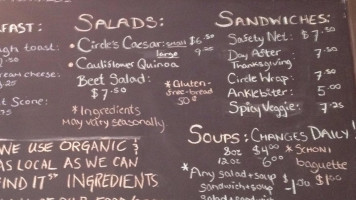 FAST:
gh toast:
cream cheese:
.25
t Scone:
.35
SALADS:
• Circle's Caesar: small $6.50
large 9.00
• Cauliflower Quinoa
Beet Salad:
$7.50
*Gluten-
free-bread
50¢
*Ingredients
may vary seasonally
WE USE ORGANIC &
AS LOCAL AS WE CAN
FIND IT INGREDIENTS
SANDWICHES:
Safety Net: $7.50
Day After Thanksgiving: 7.50
Circle Wrap: 7.50
Anklebiter: 5.00
Spicy Veggie: 7.25
SOUPS: CHANGES DAILY!
8oz $4.00
12oz 6.00
*SCHONI
baguette
$1.00
*Any salad+soup
sandwich+soup
salad+sandwich